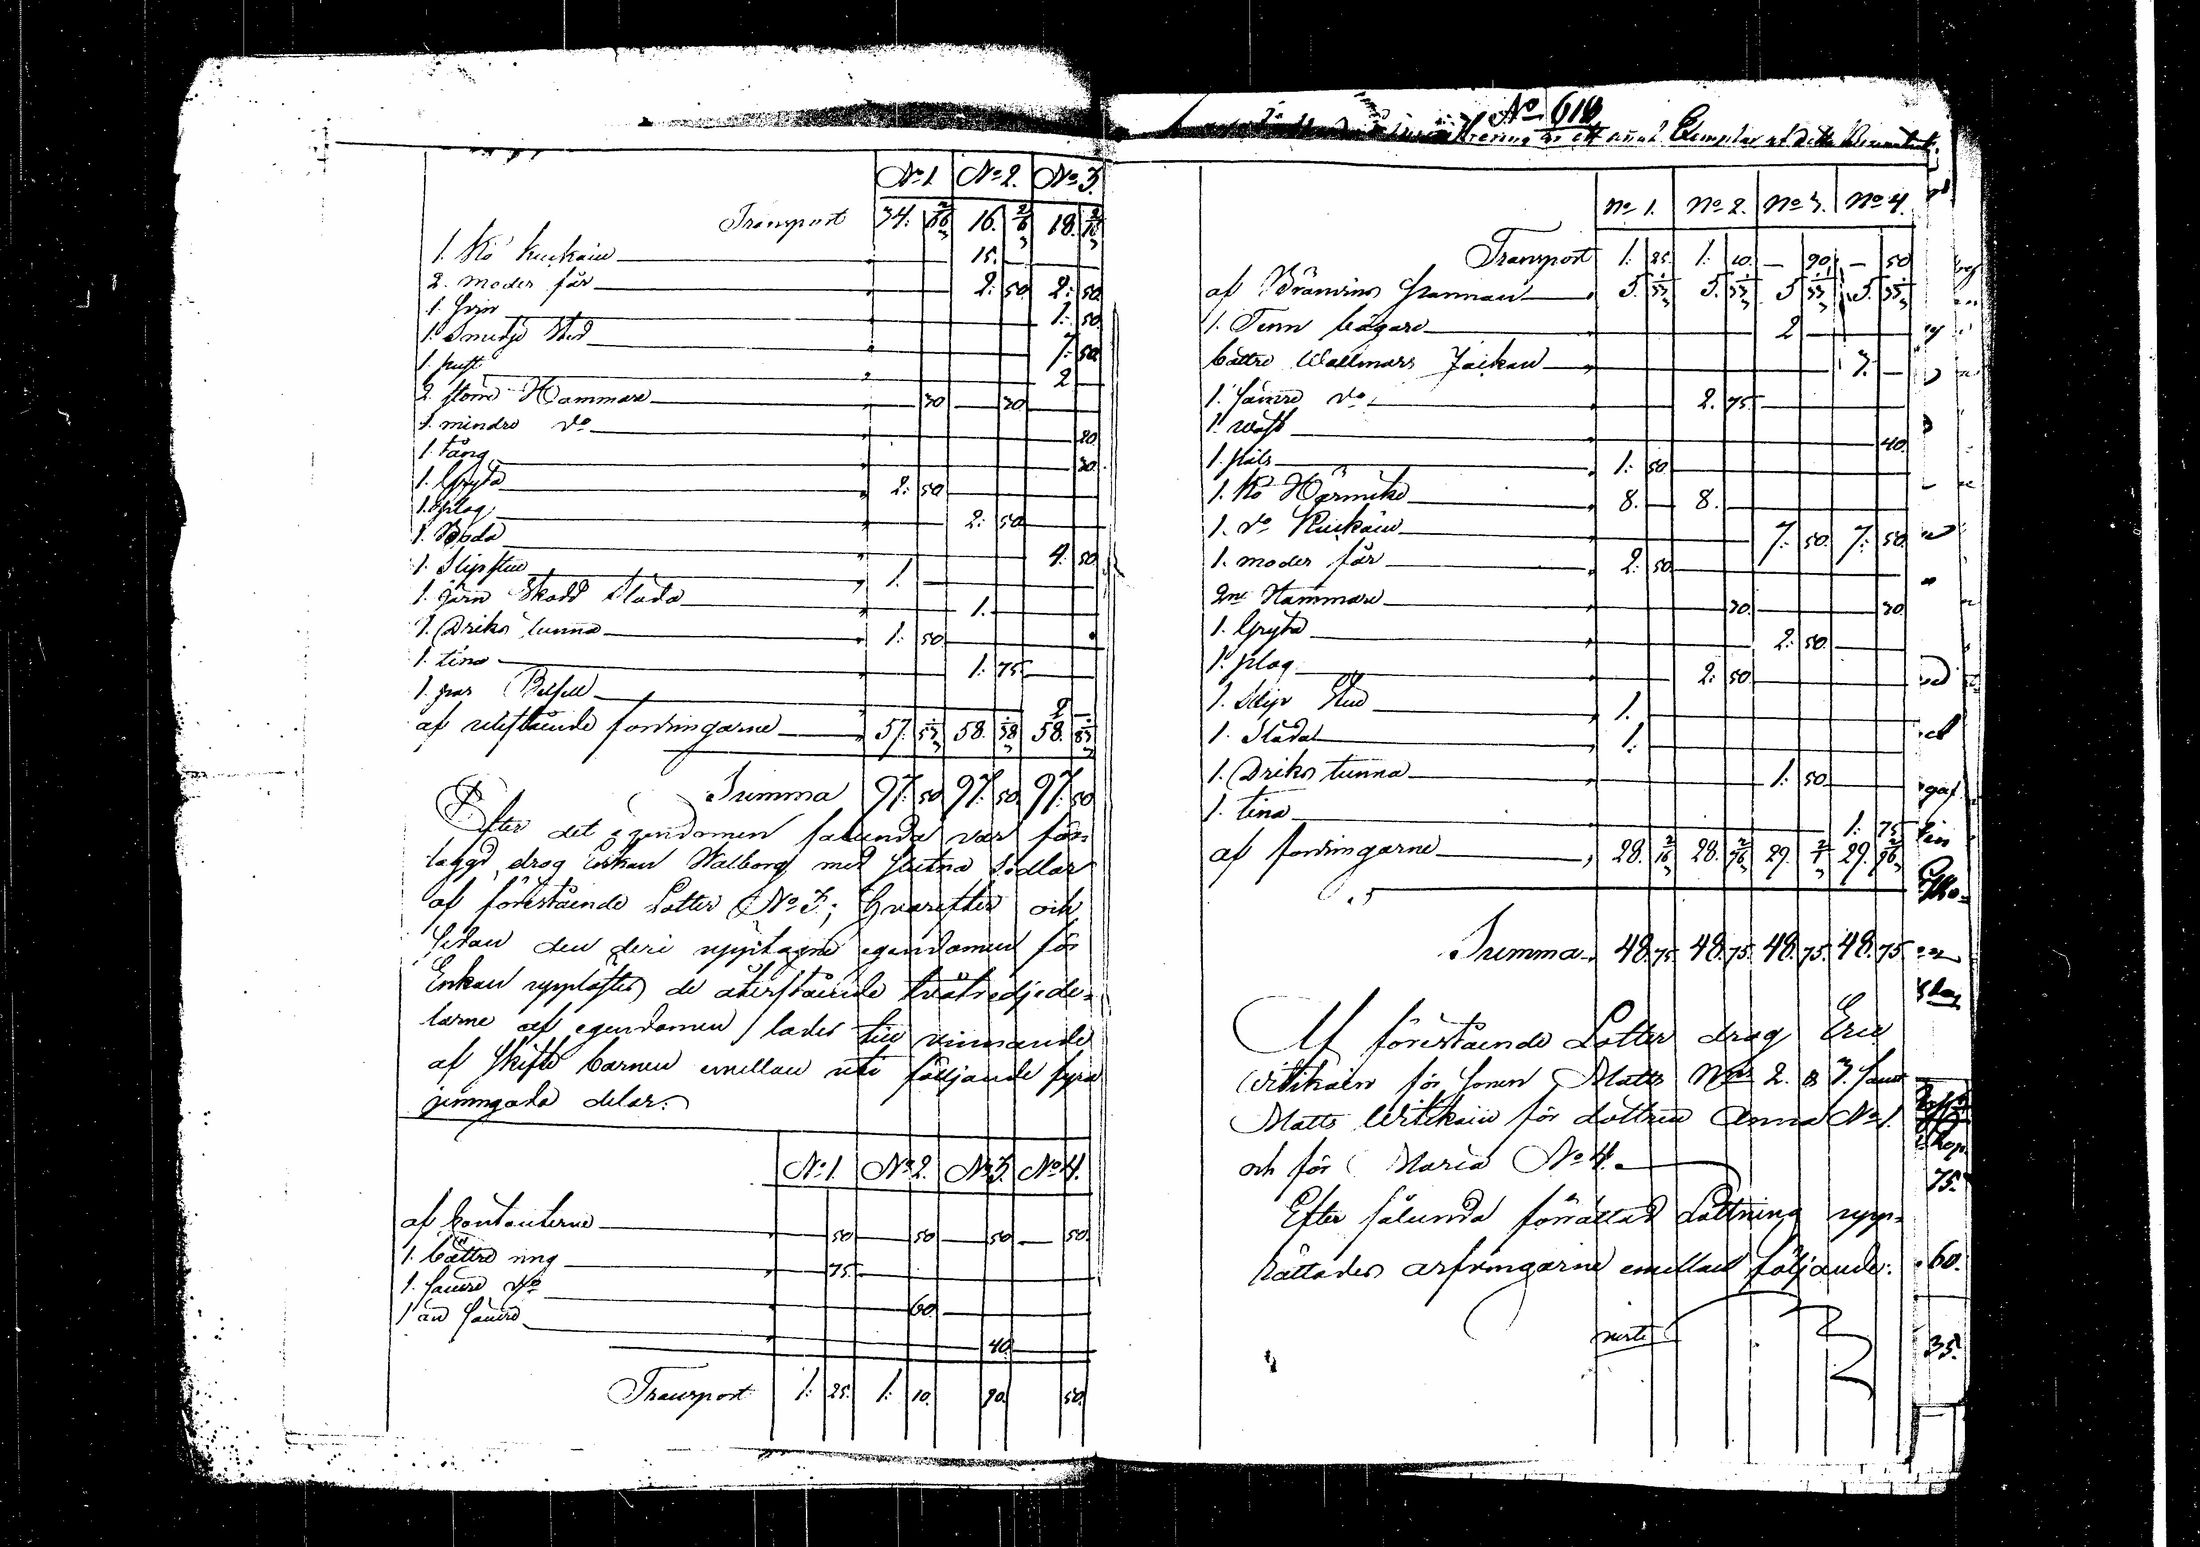 No 1. No 2. No 3.
Transport 34. 16. 18.
1. Ko Kuckain 15. —
2. moder får 2. 50 2. 50
1. Svin 1. 50
1. Smidje Städ 7. 50
1. pust 2 —
2. större Hammare 30 30
1. mindre do 20
1. tång 30
1. Gryta 2. 50
1. plog 2. 50
1. 4. 50
1. Slipsten 1. —
1. järn Skodd Släda 1. —
1. Dricks tunna 1. 50
1. tina 1. 75
1. par 2 —
af utestående fordringarne 57. 58. 58.
Summa 97. 50 97. 50 97. 50
Efter det egendomen sålunda var för-
lagd, drog Enkan Walborg med slutna Sedlar
af förestående Lotter No 3; hvarefter och
sedan den deri upptagne egendomen för
Enkan upplästes de återstående tvåtredjede-
larne af egendomen lades till vinnande
af skifte barnen emellan uti följande fyra
jemngoda delar:
No 1. No 2. No 3. No 4.
af Contanterne 50 50 50 — 50
1. bättre ring 75
1. sämre do 60
1 än sämre 40
Transport 1. 25. 1. 10. 90. 50.
No 610
ett annat Exemplar af detta
No 1. No 2. No 3. No 4.
Transport 1. 25. 1. 10. — 90. — 50
af Bränvins pannan 5. 5. 5 5.
1. Tenn bägare 2 —
bättre Wallmars Jackan 3. —
1. sämre do 2. 75
1. väst 40
1. päls 1. 50
1. Ko Härmike 8. — 8. —
1. do Kuckain 7. 50. 7. 50
1. moder får 2. 50
2ne Hammare 30 30
1. Gryta 2. 50.
1. plog 2. 50
1. Slip Sten 1.
1. Släda 1.
1. Dricks tunna 1. 50
1. tina 1. 75
af fordringarne 28. 28. 29. 29.
Summa 48. 75. 48. 75. 48. 75. 48. 75
Af förestående Lotter drog Eric
Witikain för sonen Matts No 2. & 3. samt
Matts Witikain för dottren Anna No 1.
och för Maria No 4.
Efter sålunda förrättad Lottning upp-
rättades arfvingarne emellan följande:
75.
60.
35.